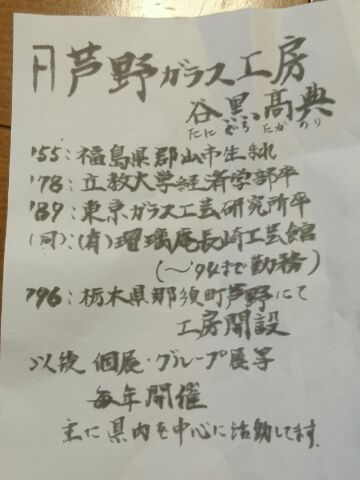 芦野ガラス工房
谷黒高典
たに ぐろ たか のり
'55:福島県郡山市生まれ
'78:立教大学経済学部卒
'89:東京ガラス工芸研究所卒
(同):(有)瑠璃庵長崎工芸館
(~'94まで勤務)
'96:栃木県那須町芦野にて
工房開設
以後 個展・グループ展等
毎年開催
主に県内を中心に活動してます.